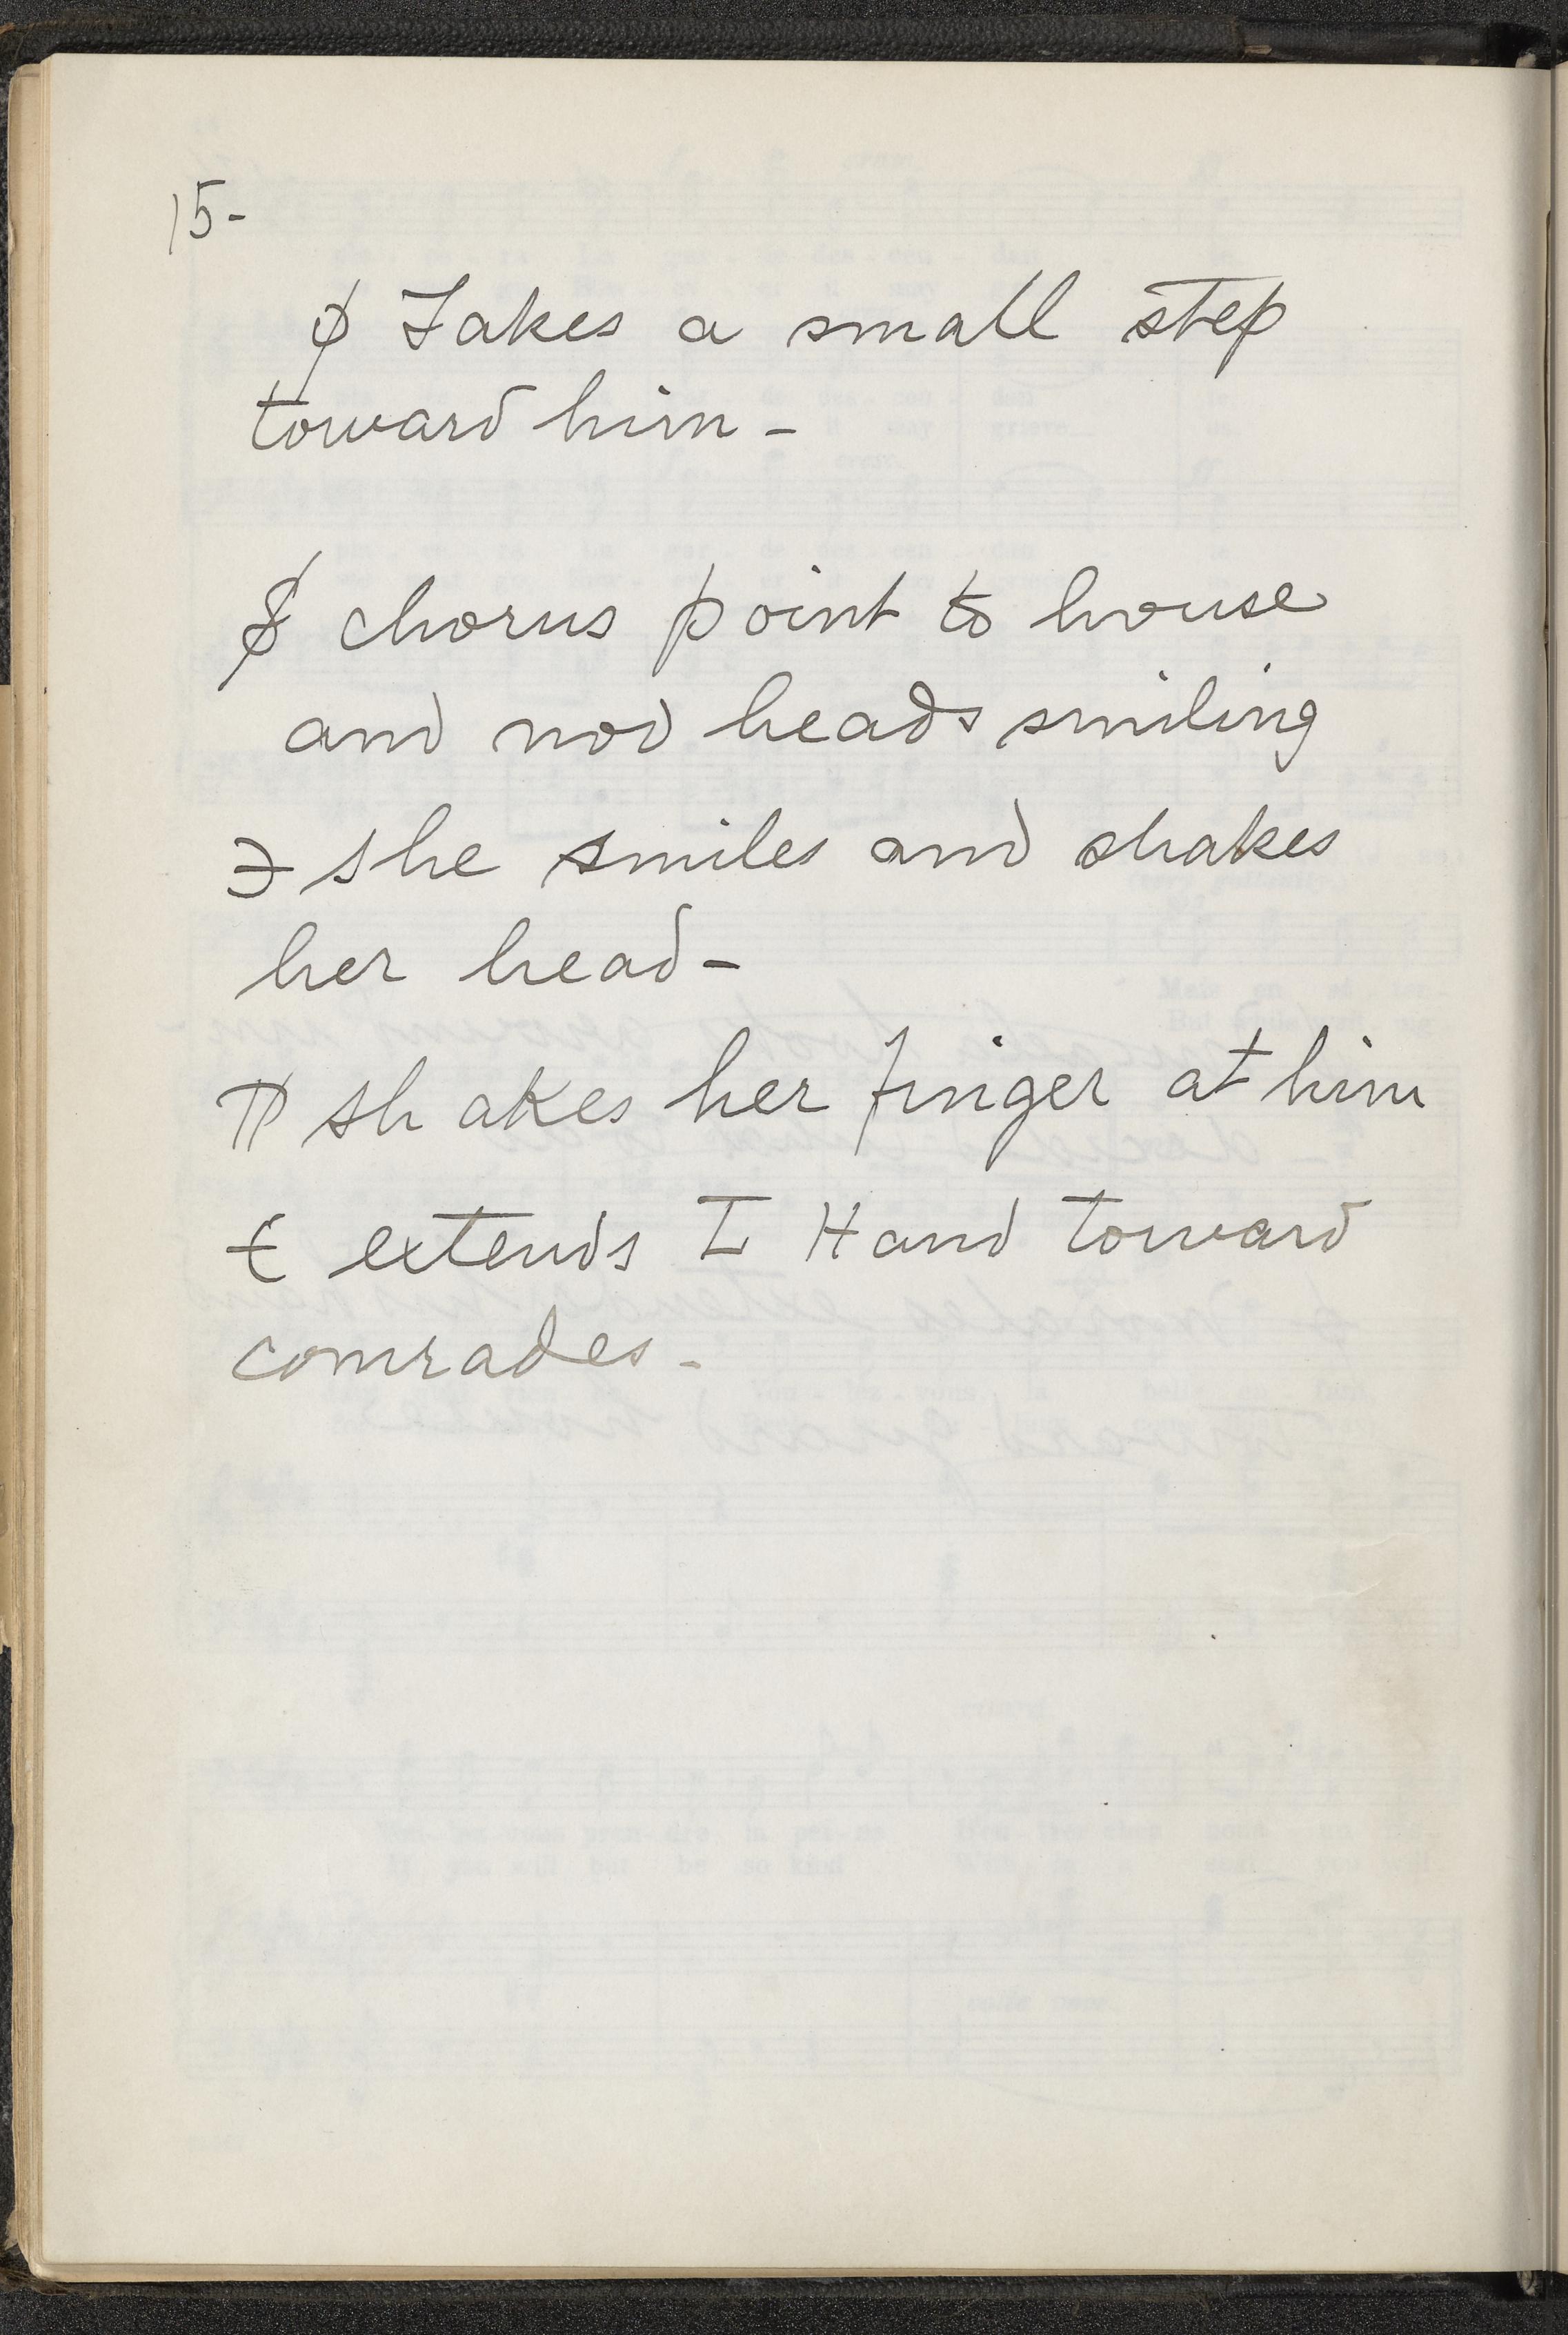 15-
φ Takes a small step
toward him -
chorus point to house
and nod heads smiling
she smiles and shakes
her head -
shakes her finger at him
extends L Hand toward
comrades -